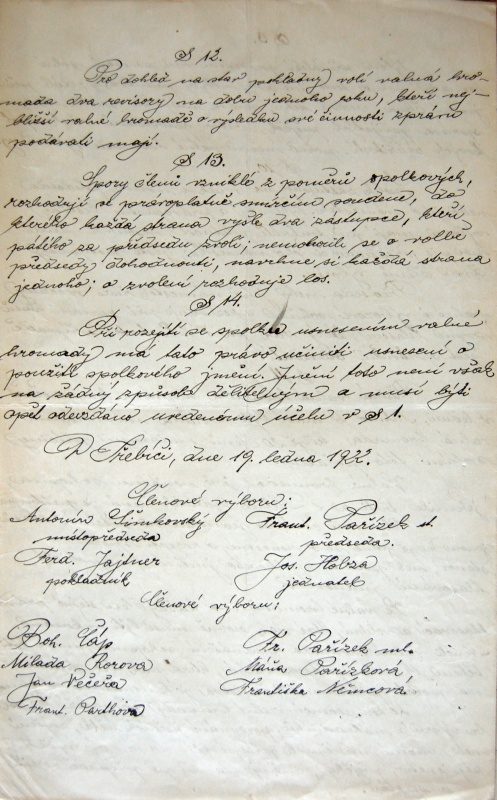 § 12.
Pro dohled na stav pokladny, volí valná hro-
mada dva revisory na dobu jednoho roku, kteří nej-
bližší valné hromadě o výsledku své činnosti zprávu
podávati mají.
§ 13.
Spory členů vzniklé z poměrů spolkových,
rozhodují se pravoplatně smírčím soudem, do
kterého každá strana vyšle dva zástupce, kteří
pátého za předsedu zvolí; nemohou-li se o volbě
předsedy dohodnouti, navrhne si každá strana
jednoho; a zvolení rozhoduje los.
§ 14.
Při rozejití se spolku usnesením valné
hromady má tato právo učiniti usnesení o
použití spolkového jmění. Jmění toto není však
na žádný způsob dělitelným a musí býti
opět odevzdáno uvedenému účelu v § 1.
V Třebíči, dne 19. ledna 1922.
Členové výboru:
Antonín Šimkovský Frant. Pařízek st.
místopředseda předseda.
Ferd. Jajtner Jos. Hobza
pokladník jednatel
Členové výboru:
Boh. Čáp Fr. Pařízek ml.
Milada Rorova Máňa Pařízková
Jan Večeřa Františka Němcová
Frant. Parthova